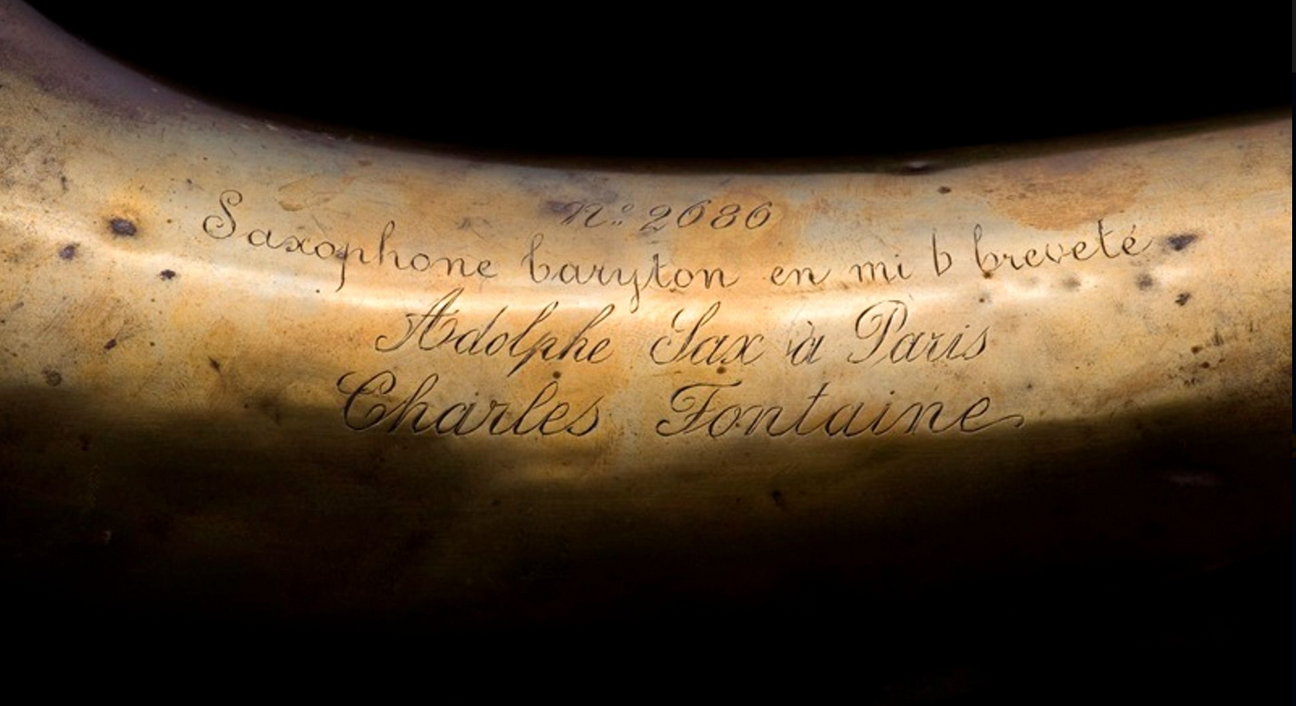 nº 2686
Saxophone baryton en mi b breveté
Adolphe Sax à Paris
Charles Fontaine